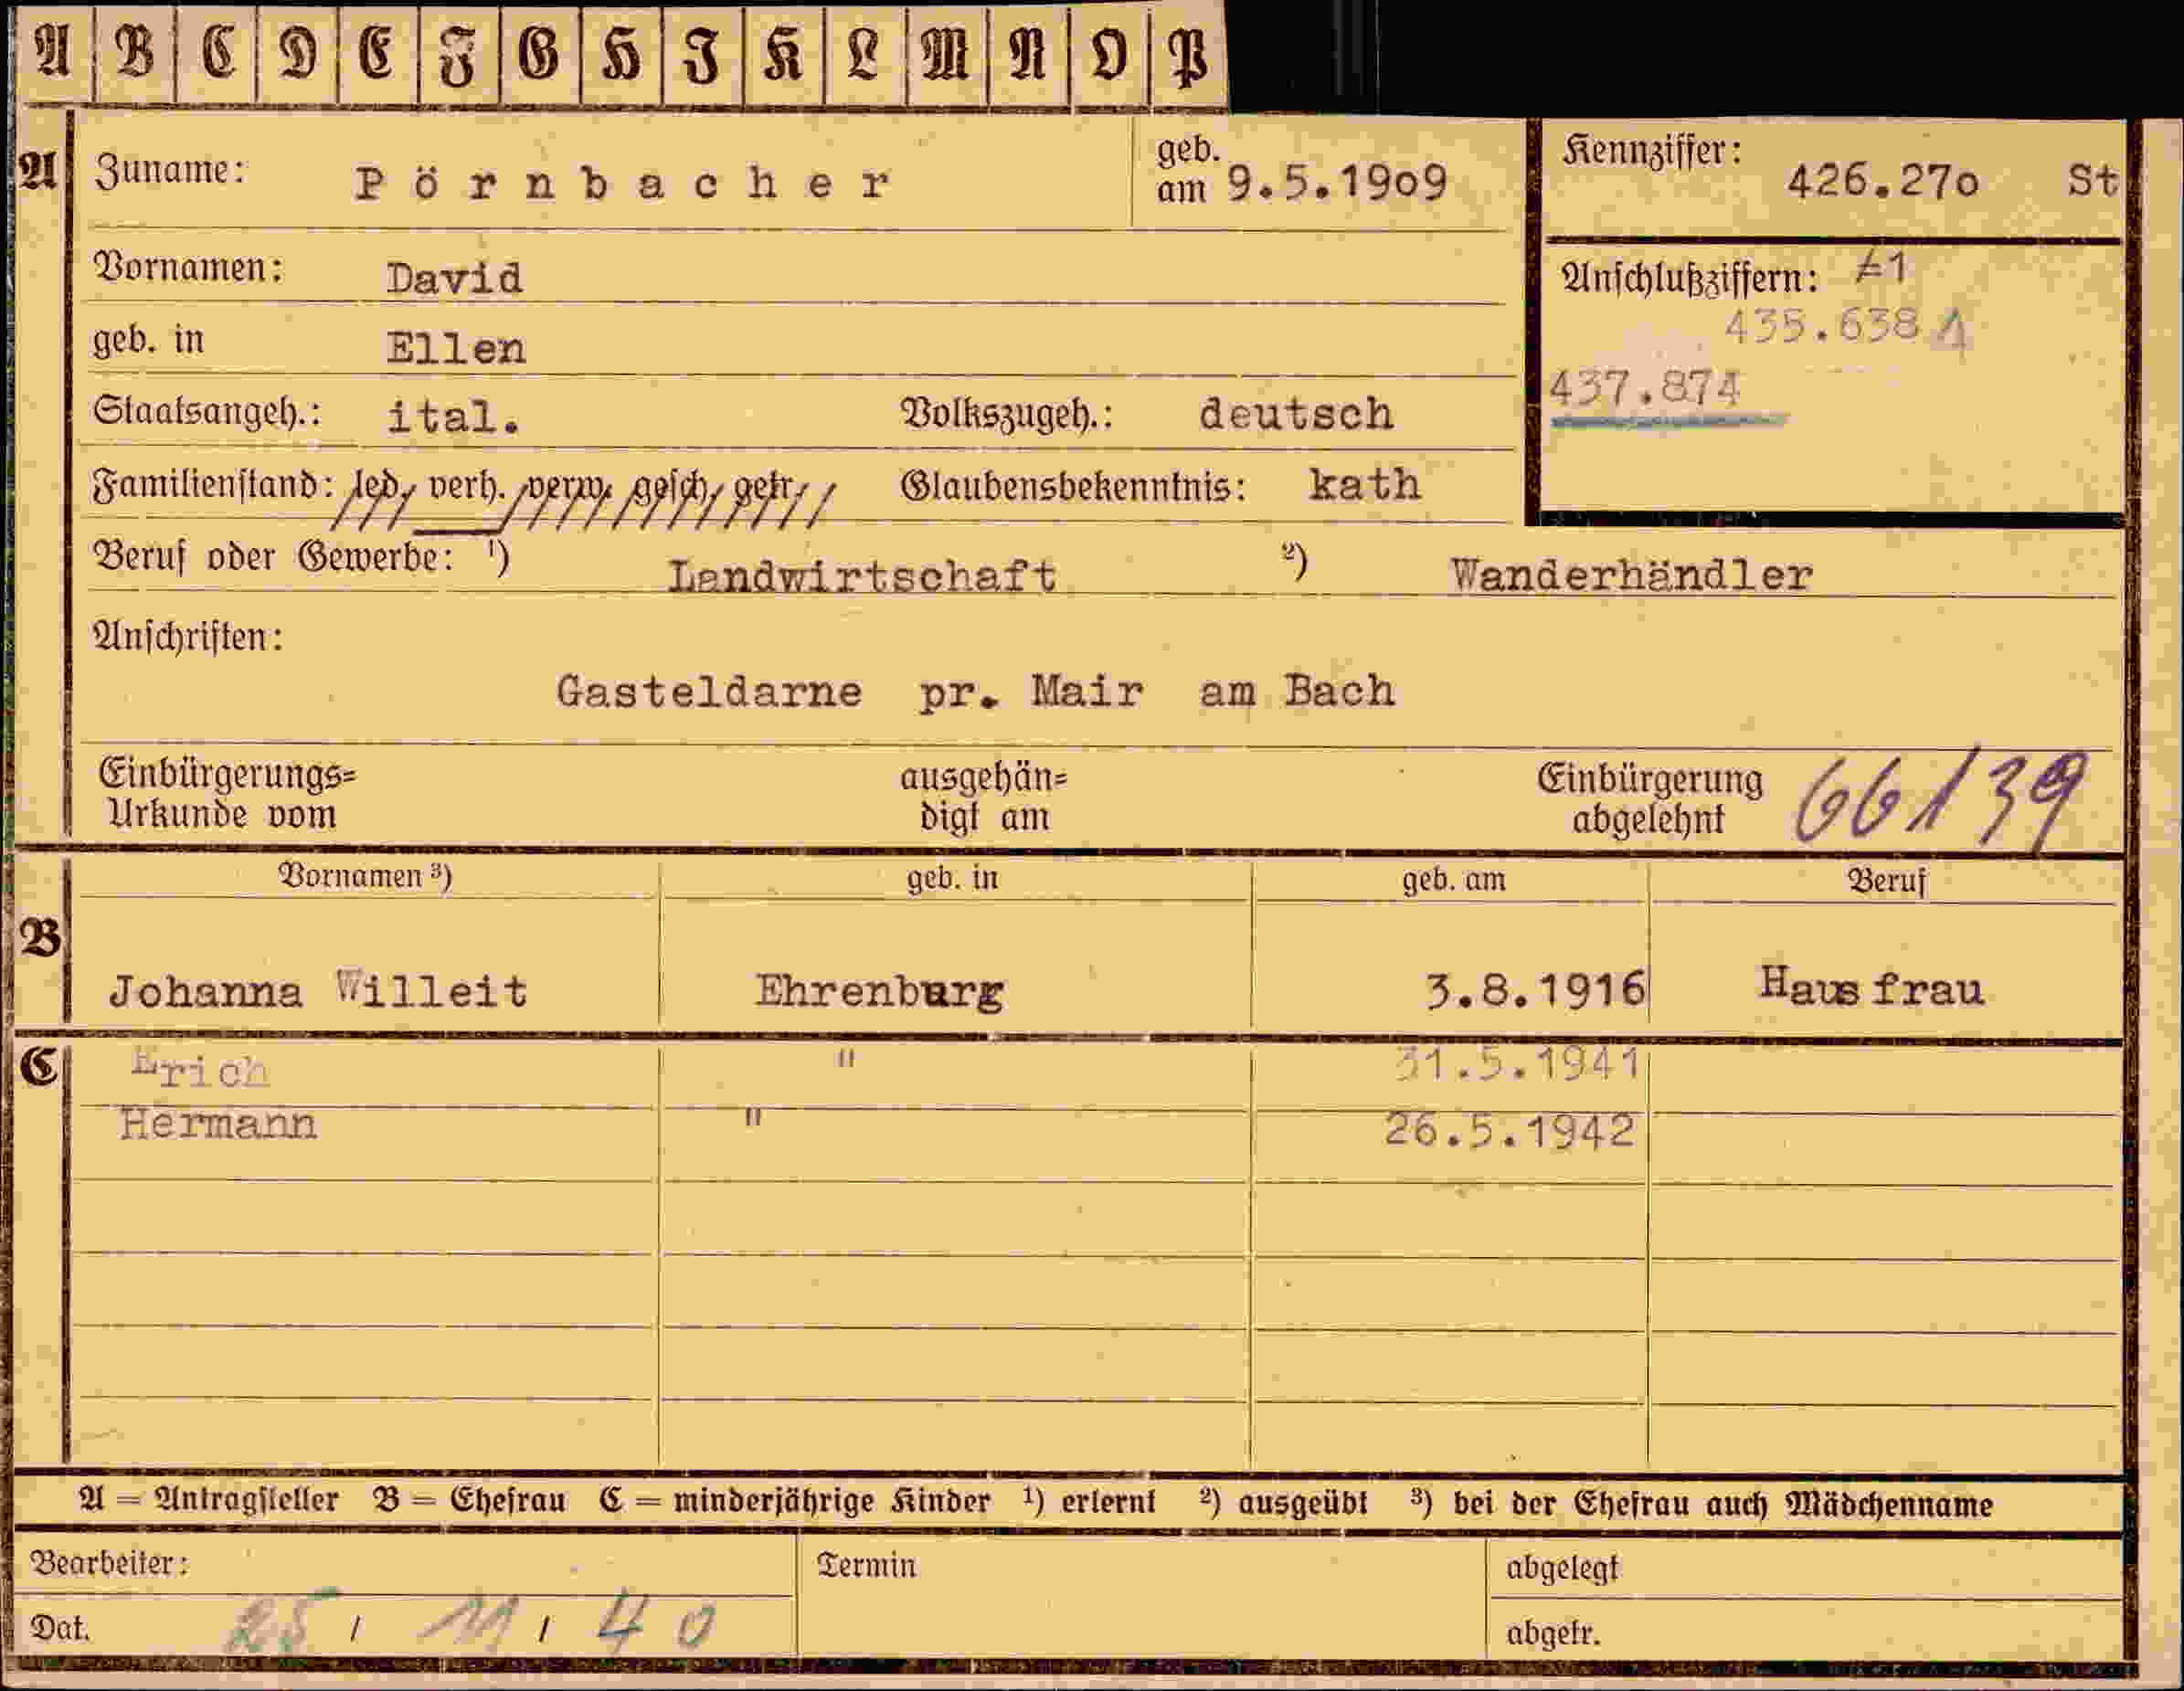 A B C D E F G H I K L M N O P
A Zuname: Pörnbacher geb. am 9.5.19o9 Kennziffer: 426.27o St
Vornamen: David Anschlußziffern: 1
435.638 1
geb. in Ellen
437.874
Staatsangeh.: ital. Volkszugeh.: deutsch
Familienstand: led, verh. verw. gesch, getr. Glaubensbekenntnis: kath
Beruf oder Gewerbe: ¹) Landwirtschaft ²) Wanderhändler
Anschriften:
Gasteldarne pr. Mair am Bach
Einbürgerungs= ausgehän= Einbürgerung 66139
Urkunde vom digt am abgelehnt
Vornamen ³) geb. in geb. am Beruf
B
Johanna Willeit Ehrenburg 3.8.1916 Hausfrau
C Erich " 31.5.1941
Hermann " 26.5.1942
A = Antragsteller B = Ehefrau C = minderjährige Kinder ¹) erlernt ²) ausgeübt ³) bei der Ehefrau auch Mädchenname
Bearbeiter: Termin abgelegt
Dat. 25 / 11 / 40 abgetr.